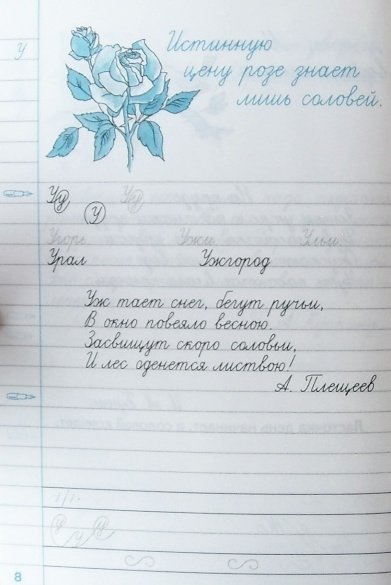 У
Истинную
цену розе знает
лишь соловей.
Уу Уу
У
Урал Ужгород
Уж тает снег, бегут ручьи,
В окно повеяло весною.
Засвищут скоро соловьи,
И лес оденется листвою!
А. Плещеев
8